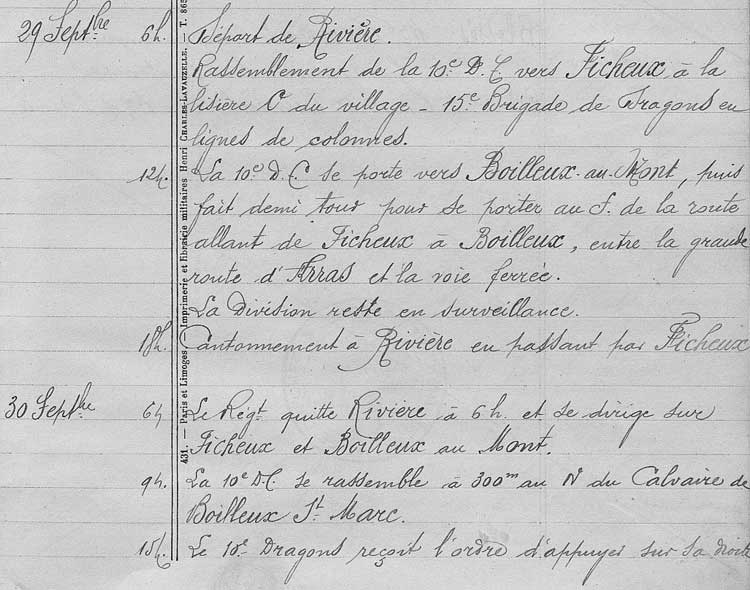 29 Sept.bre 6h. Départ de Rivière.
Rassemblement de la 10e D.C vers Ficheux à la
lisière O. du village - 15e Brigade de Dragons en
lignes de colonnes.
12h. La 10e D.C. se porte vers Boilleux-au-Mont, puis
fait demi tour pour se porter au S. de la route
allant de Ficheux à Boilleux, entre la grande
route d'Arras et la voie ferrée.
La Division reste en surveillance.
18h. Cantonnement à Rivière en passant par Ficheux
30 Septbre 6h Le Régt quitte Rivière à 6 h. et se dirige sur
Ficheux et Boilleux au Mont.
9h. La 10e D.C. se rassemble à 300m au N du Calvaire de
Boilleux St Marc.
15h. Le 10e Dragons reçoit l'ordre d'appuyer sur sa droite
431. — Paris et Limoges. — Imprimerie et librairie militaires Henri CHARLES-LAVAUZELLE. T. 865